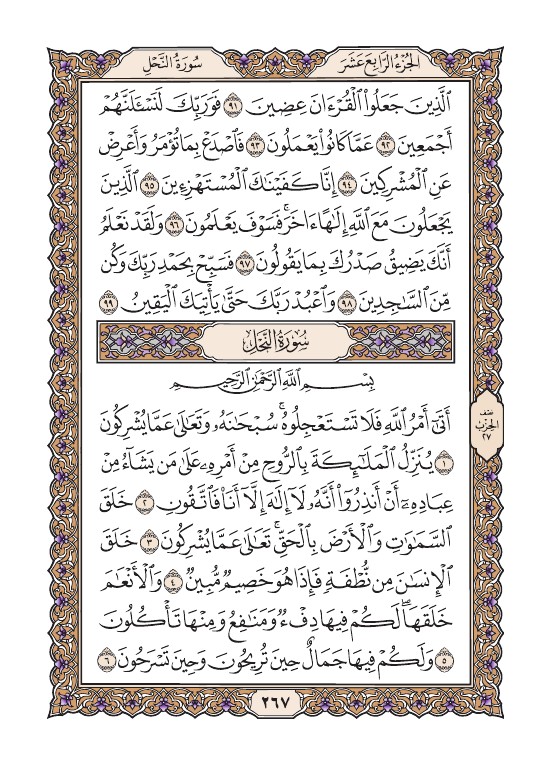 سُورَةُ النَّحْلِ
الجُزْءُ الرَّابِعَ عَشَرَ
ٱلَّذِينَ جَعَلُوا۟ ٱلْقُرْءَانَ عِضِينَ ٩١ فَوَرَبِّكَ لَنَسْـَٔلَنَّهُمْ
أَجْمَعِينَ ٩٢ عَمَّا كَانُوا۟ يَعْمَلُونَ ٩٣ فَٱصْدَعْ بِمَا تُؤْمَرُ وَأَعْرِضْ
عَنِ ٱلْمُشْرِكِينَ ٩٤ إِنَّا كَفَيْنَٰكَ ٱلْمُسْتَهْزِءِينَ ٩٥ ٱلَّذِينَ
يَجْعَلُونَ مَعَ ٱللَّهِ إِلَٰهًا ءَاخَرَ ۚ فَسَوْفَ يَعْلَمُونَ ٩٦ وَلَقَدْ نَعْلَمُ
أَنَّكَ يَضِيقُ صَدْرُكَ بِمَا يَقُولُونَ ٩٧ فَسَبِّحْ بِحَمْدِ رَبِّكَ وَكُن
مِّنَ ٱلسَّٰجِدِينَ ٩٨ وَٱعْبُدْ رَبَّكَ حَتَّىٰ يَأْتِيَكَ ٱلْيَقِينُ ٩٩
سُورَةُ النَّحْلِ
بِسْمِ ٱللَّهِ ٱلرَّحْمَٰنِ ٱلرَّحِيمِ
أَتَىٰٓ أَمْرُ ٱللَّهِ فَلَا تَسْتَعْجِلُوهُ ۚ سُبْحَٰنَهُۥ وَتَعَٰلَىٰ عَمَّا يُشْرِكُونَ
١ يُنَزِّلُ ٱلْمَلَٰٓئِكَةَ بِٱلرُّوحِ مِنْ أَمْرِهِۦ عَلَىٰ مَن يَشَآءُ مِنْ
عِبَادِهِۦٓ أَنْ أَنذِرُوٓا۟ أَنَّهُۥ لَآ إِلَٰهَ إِلَّآ أَنَا۠ فَٱتَّقُونِ ٢ خَلَقَ
ٱلسَّمَٰوَٰتِ وَٱلْأَرْضَ بِٱلْحَقِّ ۚ تَعَٰلَىٰ عَمَّا يُشْرِكُونَ ٣ خَلَقَ
ٱلْإِنسَٰنَ مِن نُّطْفَةٍ فَإِذَا هُوَ خَصِيمٌ مُّبِينٌ ٤ وَٱلْأَنْعَٰمَ
خَلَقَهَا ۗ لَكُمْ فِيهَا دِفْءٌ وَمَنَٰفِعُ وَمِنْهَا تَأْكُلُونَ
٥ وَلَكُمْ فِيهَا جَمَالٌ حِينَ تُرِيحُونَ وَحِينَ تَسْرَحُونَ ٦
نصف
الحزب
٢٧
٢٦٧